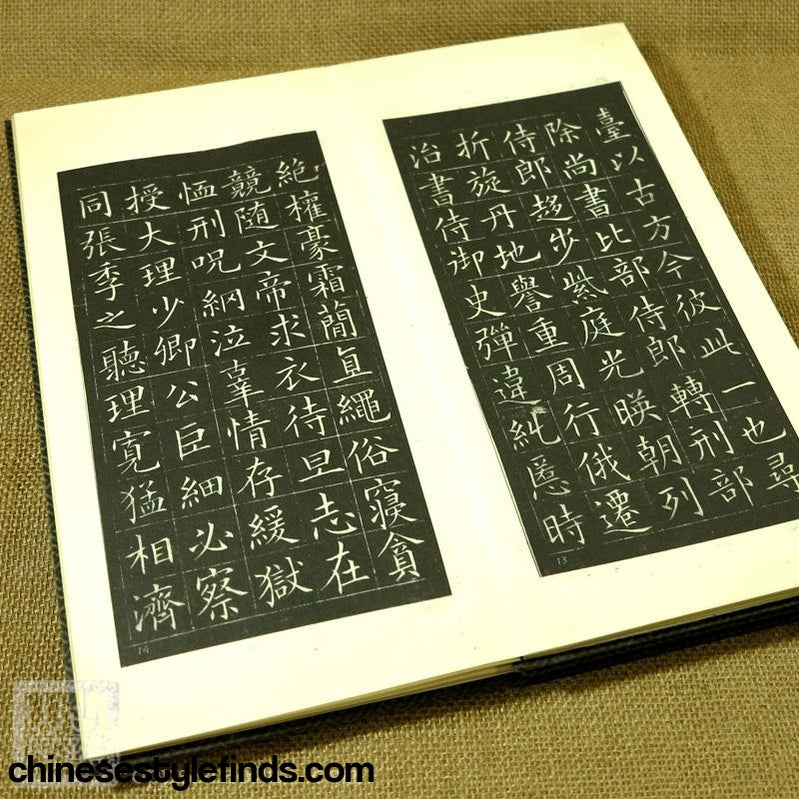 臺以古方今彼此一也尋
除尚書比部侍郎轉刑部
侍郎趍步紫庭光暎朝列
折旋丹地譽重周行俄遷
治書侍御史彈違糺慝時
13
絶權豪霜簡直繩俗寢貪
競随文帝求衣待旦志在
恤刑呪網泣辜情存緩獄
授大理少卿公巨細必察
同張季之聽理寬猛相濟
14
chinesestylefinds.com